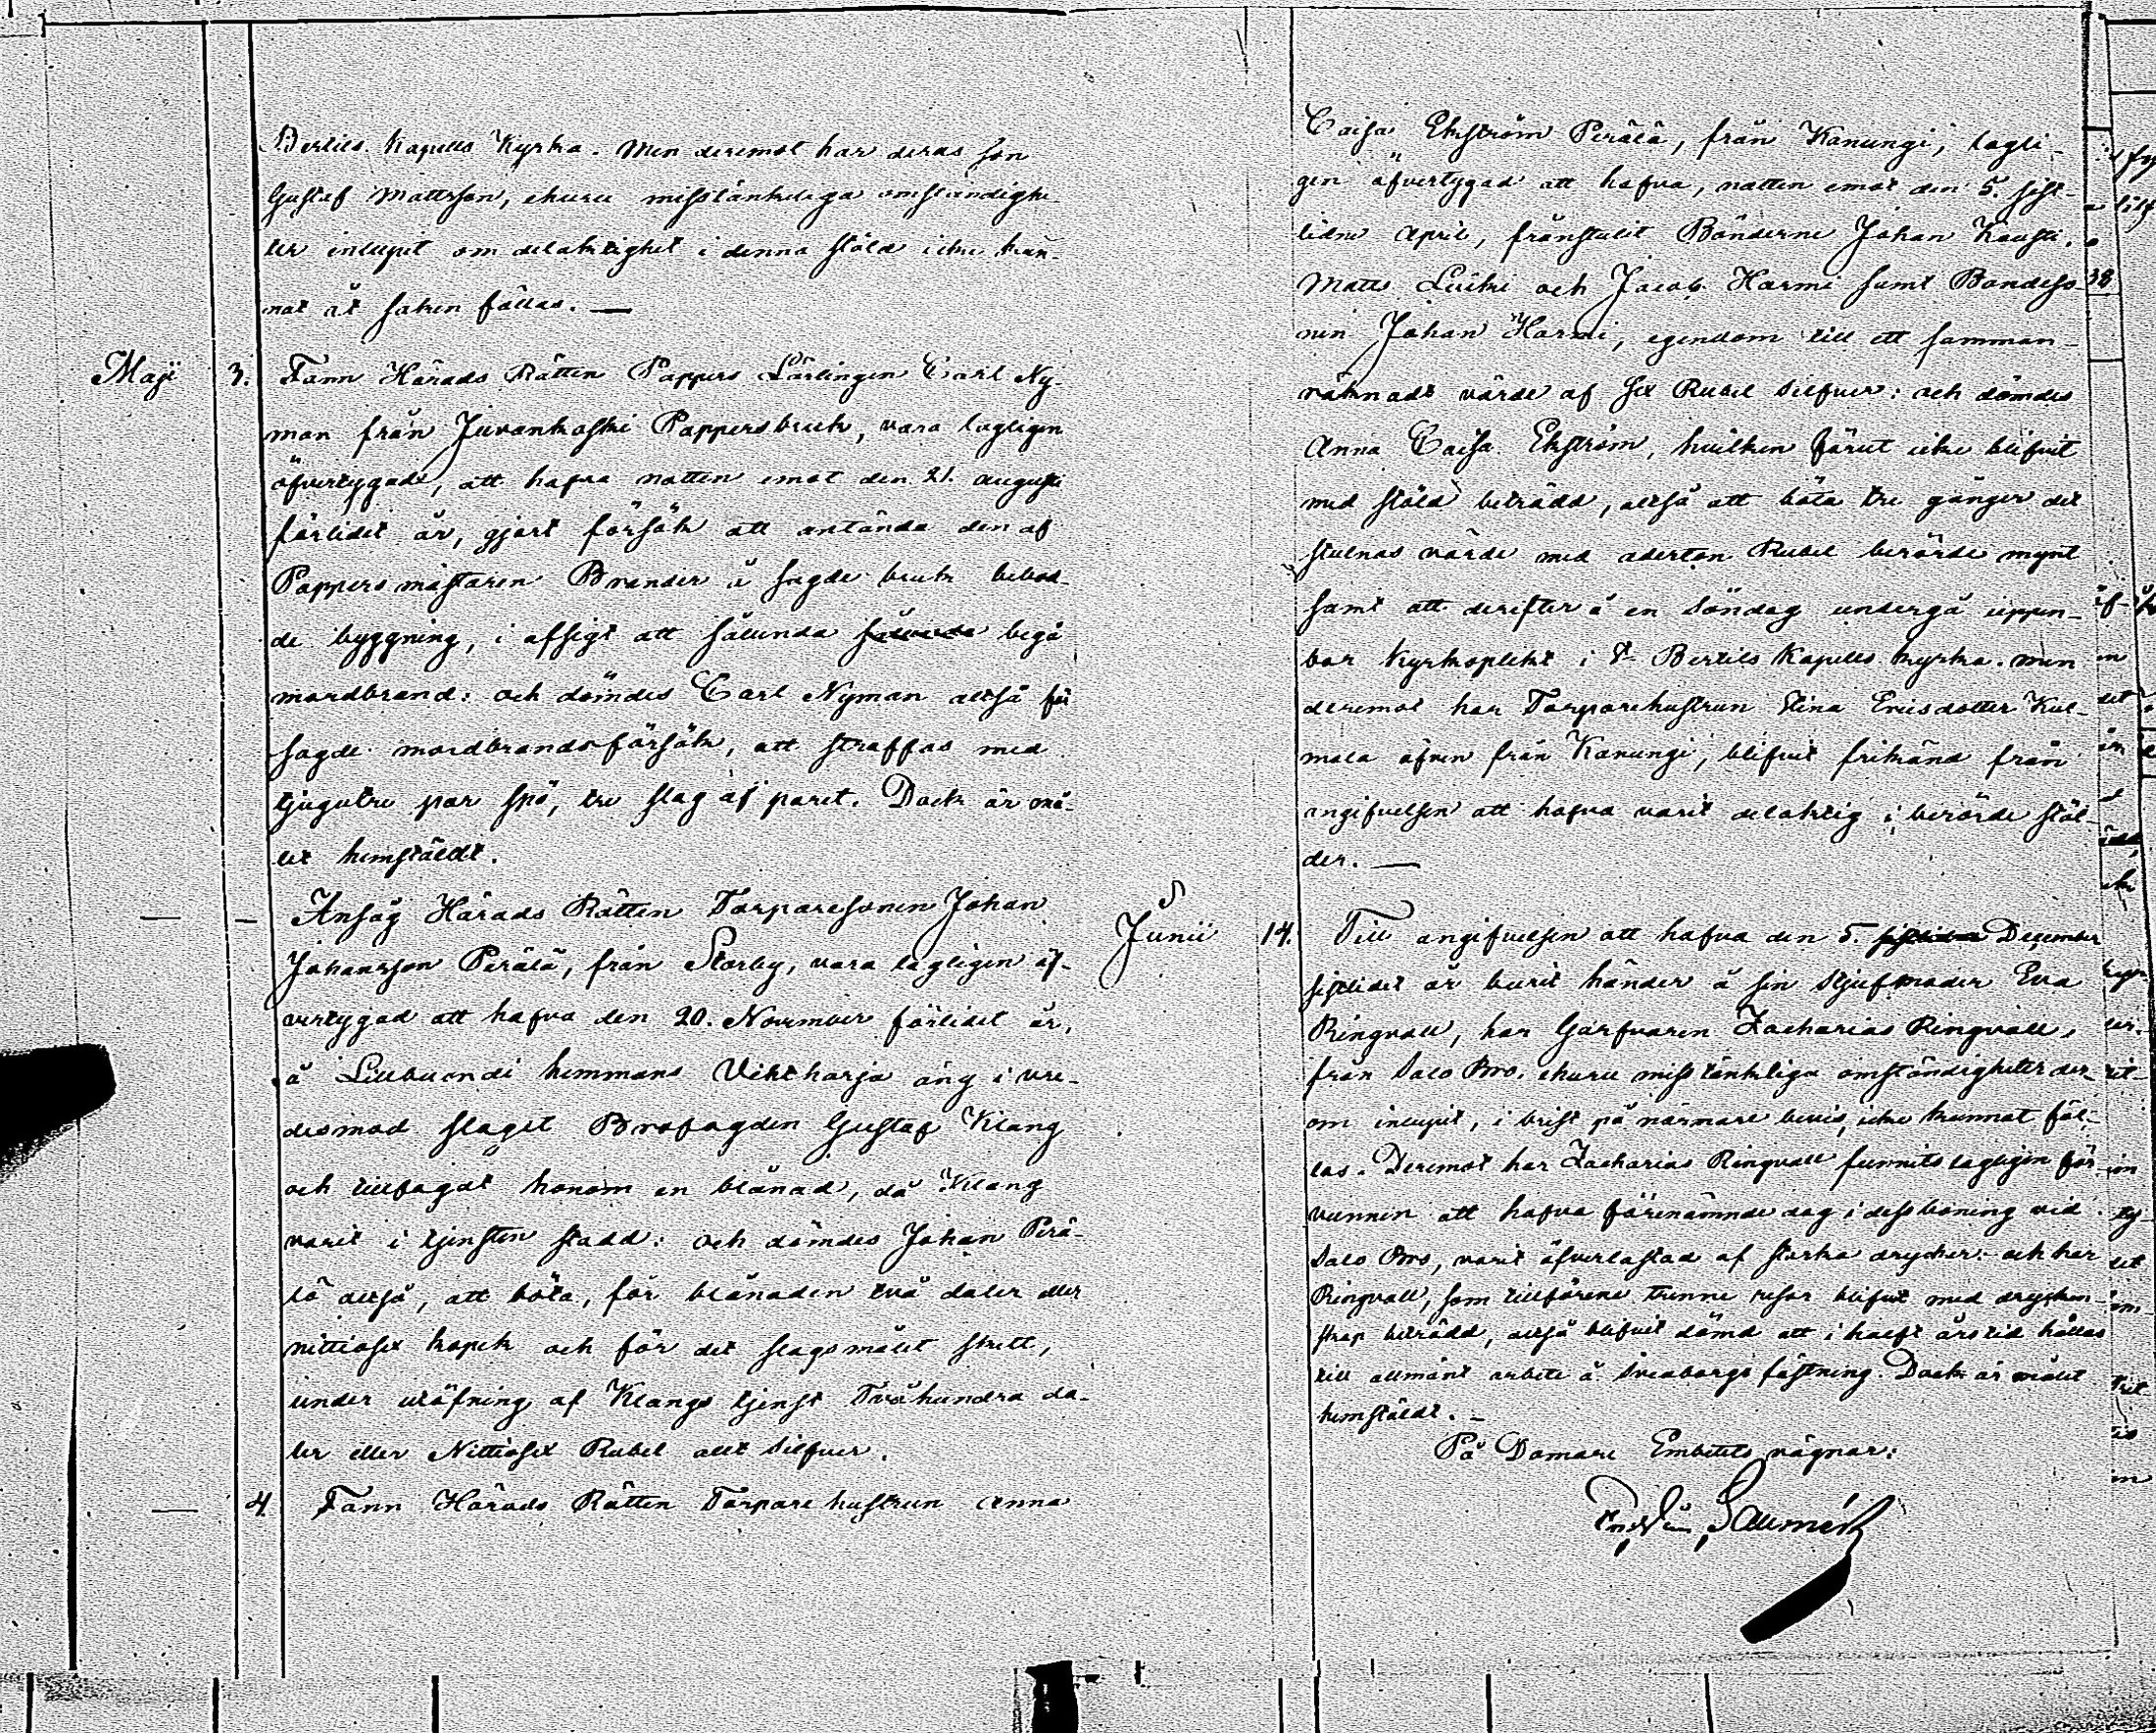 Bertils Kapells Kyrka. Men deremot har deras son
Gustaf Mattsson, ehuru misstänkeliga omständighe-
ter inlupit om delaktighet i denna stöld icke kun-
nat åt saken fällas. —
Maji 3. Fann Härads Rätten Pappers Lärlingen Carl Ny-
man från Juvankoski Pappersbruk, vara lagligen
öfvertygad, att hafva natten emot den 21. augusti
förlidet år, gjort försök att antända den af
Pappersmästaren Brander å sagde bruk bebod-
de byggning, i afsigt att sålunda begå
mordbrand: och dömdes Carl Nyman altså för
sagde mordbrandsförsök, att straffas med
tjugutre par spö, tre slag af paret. Dock är må-
let hemstäldt.
— — Ansåg Härads Rätten Torparesonen Johan
Johansson Perälä, från Storby, vara lagligen öf-
vertygad att hafva den 20. November förlidet år,
å Lillbuondi hemmans Viktharja äng i vre-
desmod slagit Brofogden Gustaf Klang
och tillfogat honom en blånad, då Klang
varit i tjensten stadd: och dömdes Johan Perä-
lä altså, att böta, för blånaden två daler eller
nittiosex kopek och för det slagsmålet skett,
under utöfning af Klangs tjenst Tvåhundra da-
ler eller Nittiosex Rubel allt Silfver.
— 4. Fann Härads Rätten Torpare hustrun Anna
Caisa Ekström Perälä, från Kanungi, lagli-
gen öfvertygad att hafva, natten emot den 5. sist-
lidne April, frånstulit Bönderne Johan Kousti,
Matts Luiki och Jacob Harmi samt Bondeso-
nen Johan Harmi, egendom till ett samman-
räknadt värde af sex Rubel Silfver: och dömdes
Anna Caisa Ekström, hvilken förut icke blifvit
med stöld beträdd, altså att böta tre gånger det
stulnas värde med aderton Rubel berörde mynt
samt att derefter å en Söndag undergå uppen-
bar Kyrkoplikt i St Bertils Kapells kyrka. men
deremot har Torparehustrun Stina Ericsdotter Kul-
mala äfven från Kanungi, blifvit frikänd från
angifvelsen att hafva varit delaktig i berörde stöl-
der. —
Junii 14. Till angifvelsen att hafva den 5. December
sistlidet år burit händer å sin Stjufmoder Eva
Ringvall, har Garfvaren Zacharias Ringvall,
från Salo Bro, ehuru misstänkliga omständigheter der-
om inlupit, i brist på närmare bevis, icke kunnat fäl-
las. Deremot har Zacharias Ringvall funnits lagligen för-
vunnen att hafva förenämnde dag i dess boning vid
Salo Bro, varit öfverlastad af starka drycker och har
Ringvall, som tillförene trenne resor blifvit med drycken-
skap beträdd, altså blifvit dömd att i halft års tid hållas
till allmänt arbete å Sveaborgs fästning. Dock är målet
hemstäldt. —
På Domare Embetets vägnar: